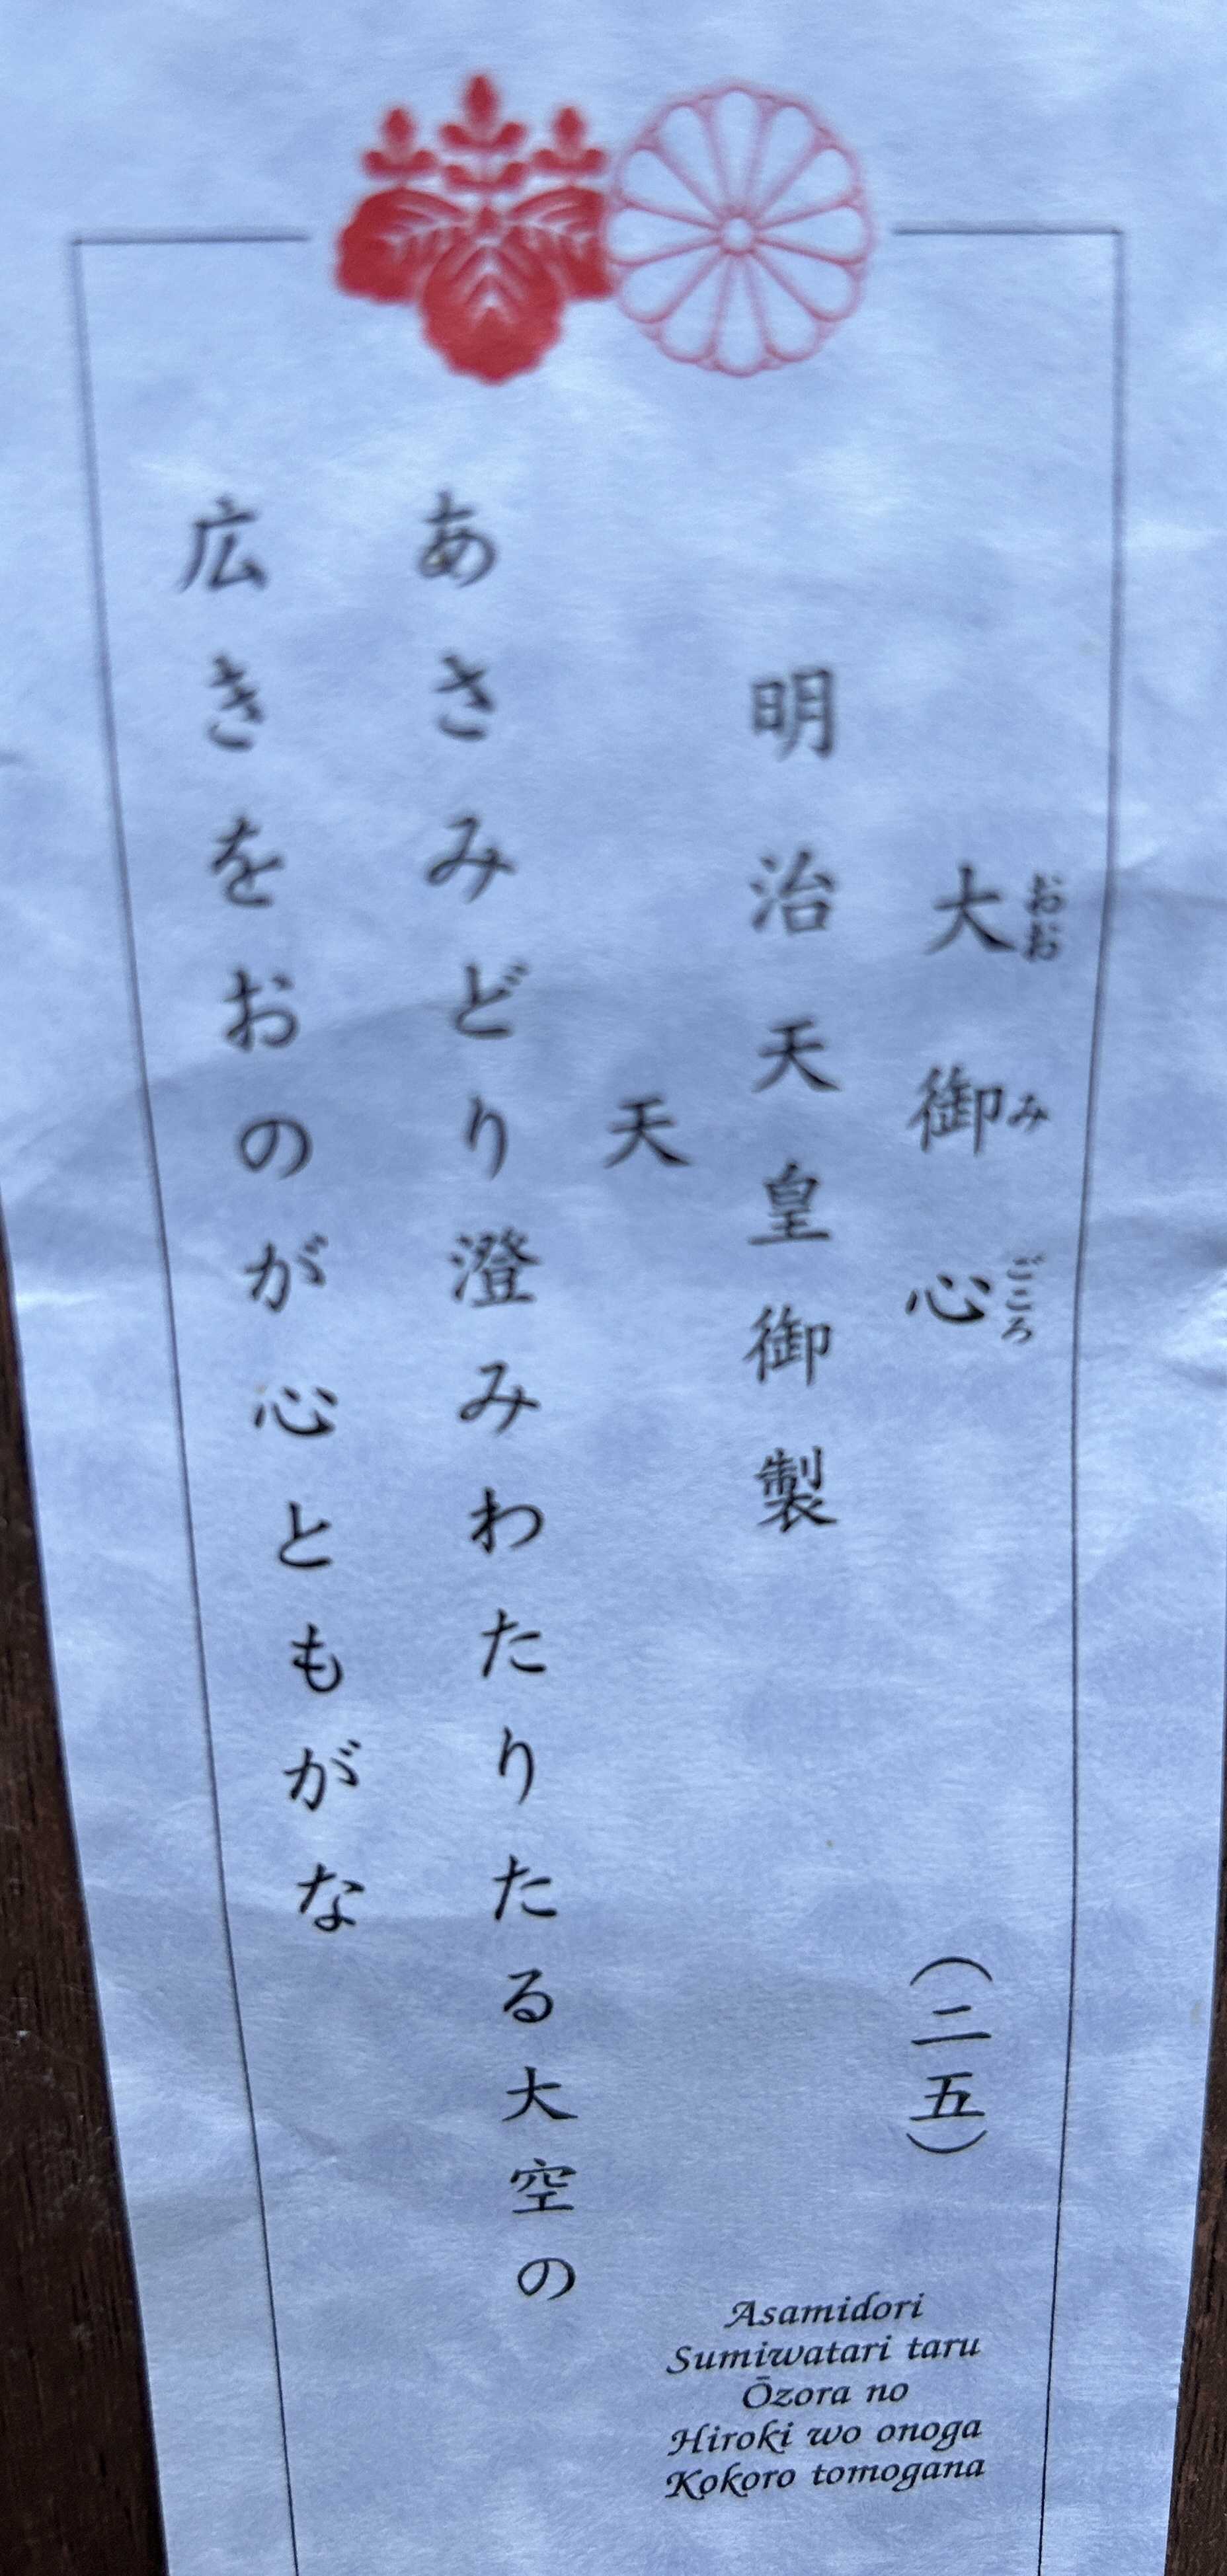 大御心
おおみごころ
(二五)
明治天皇御製
天
あさみどり澄みわたりたる大空の
広きをおのが心ともがな
Asamidori
Sumiwatari taru
Ōzora no
Hiroki wo onoga
Kokoro tomogana